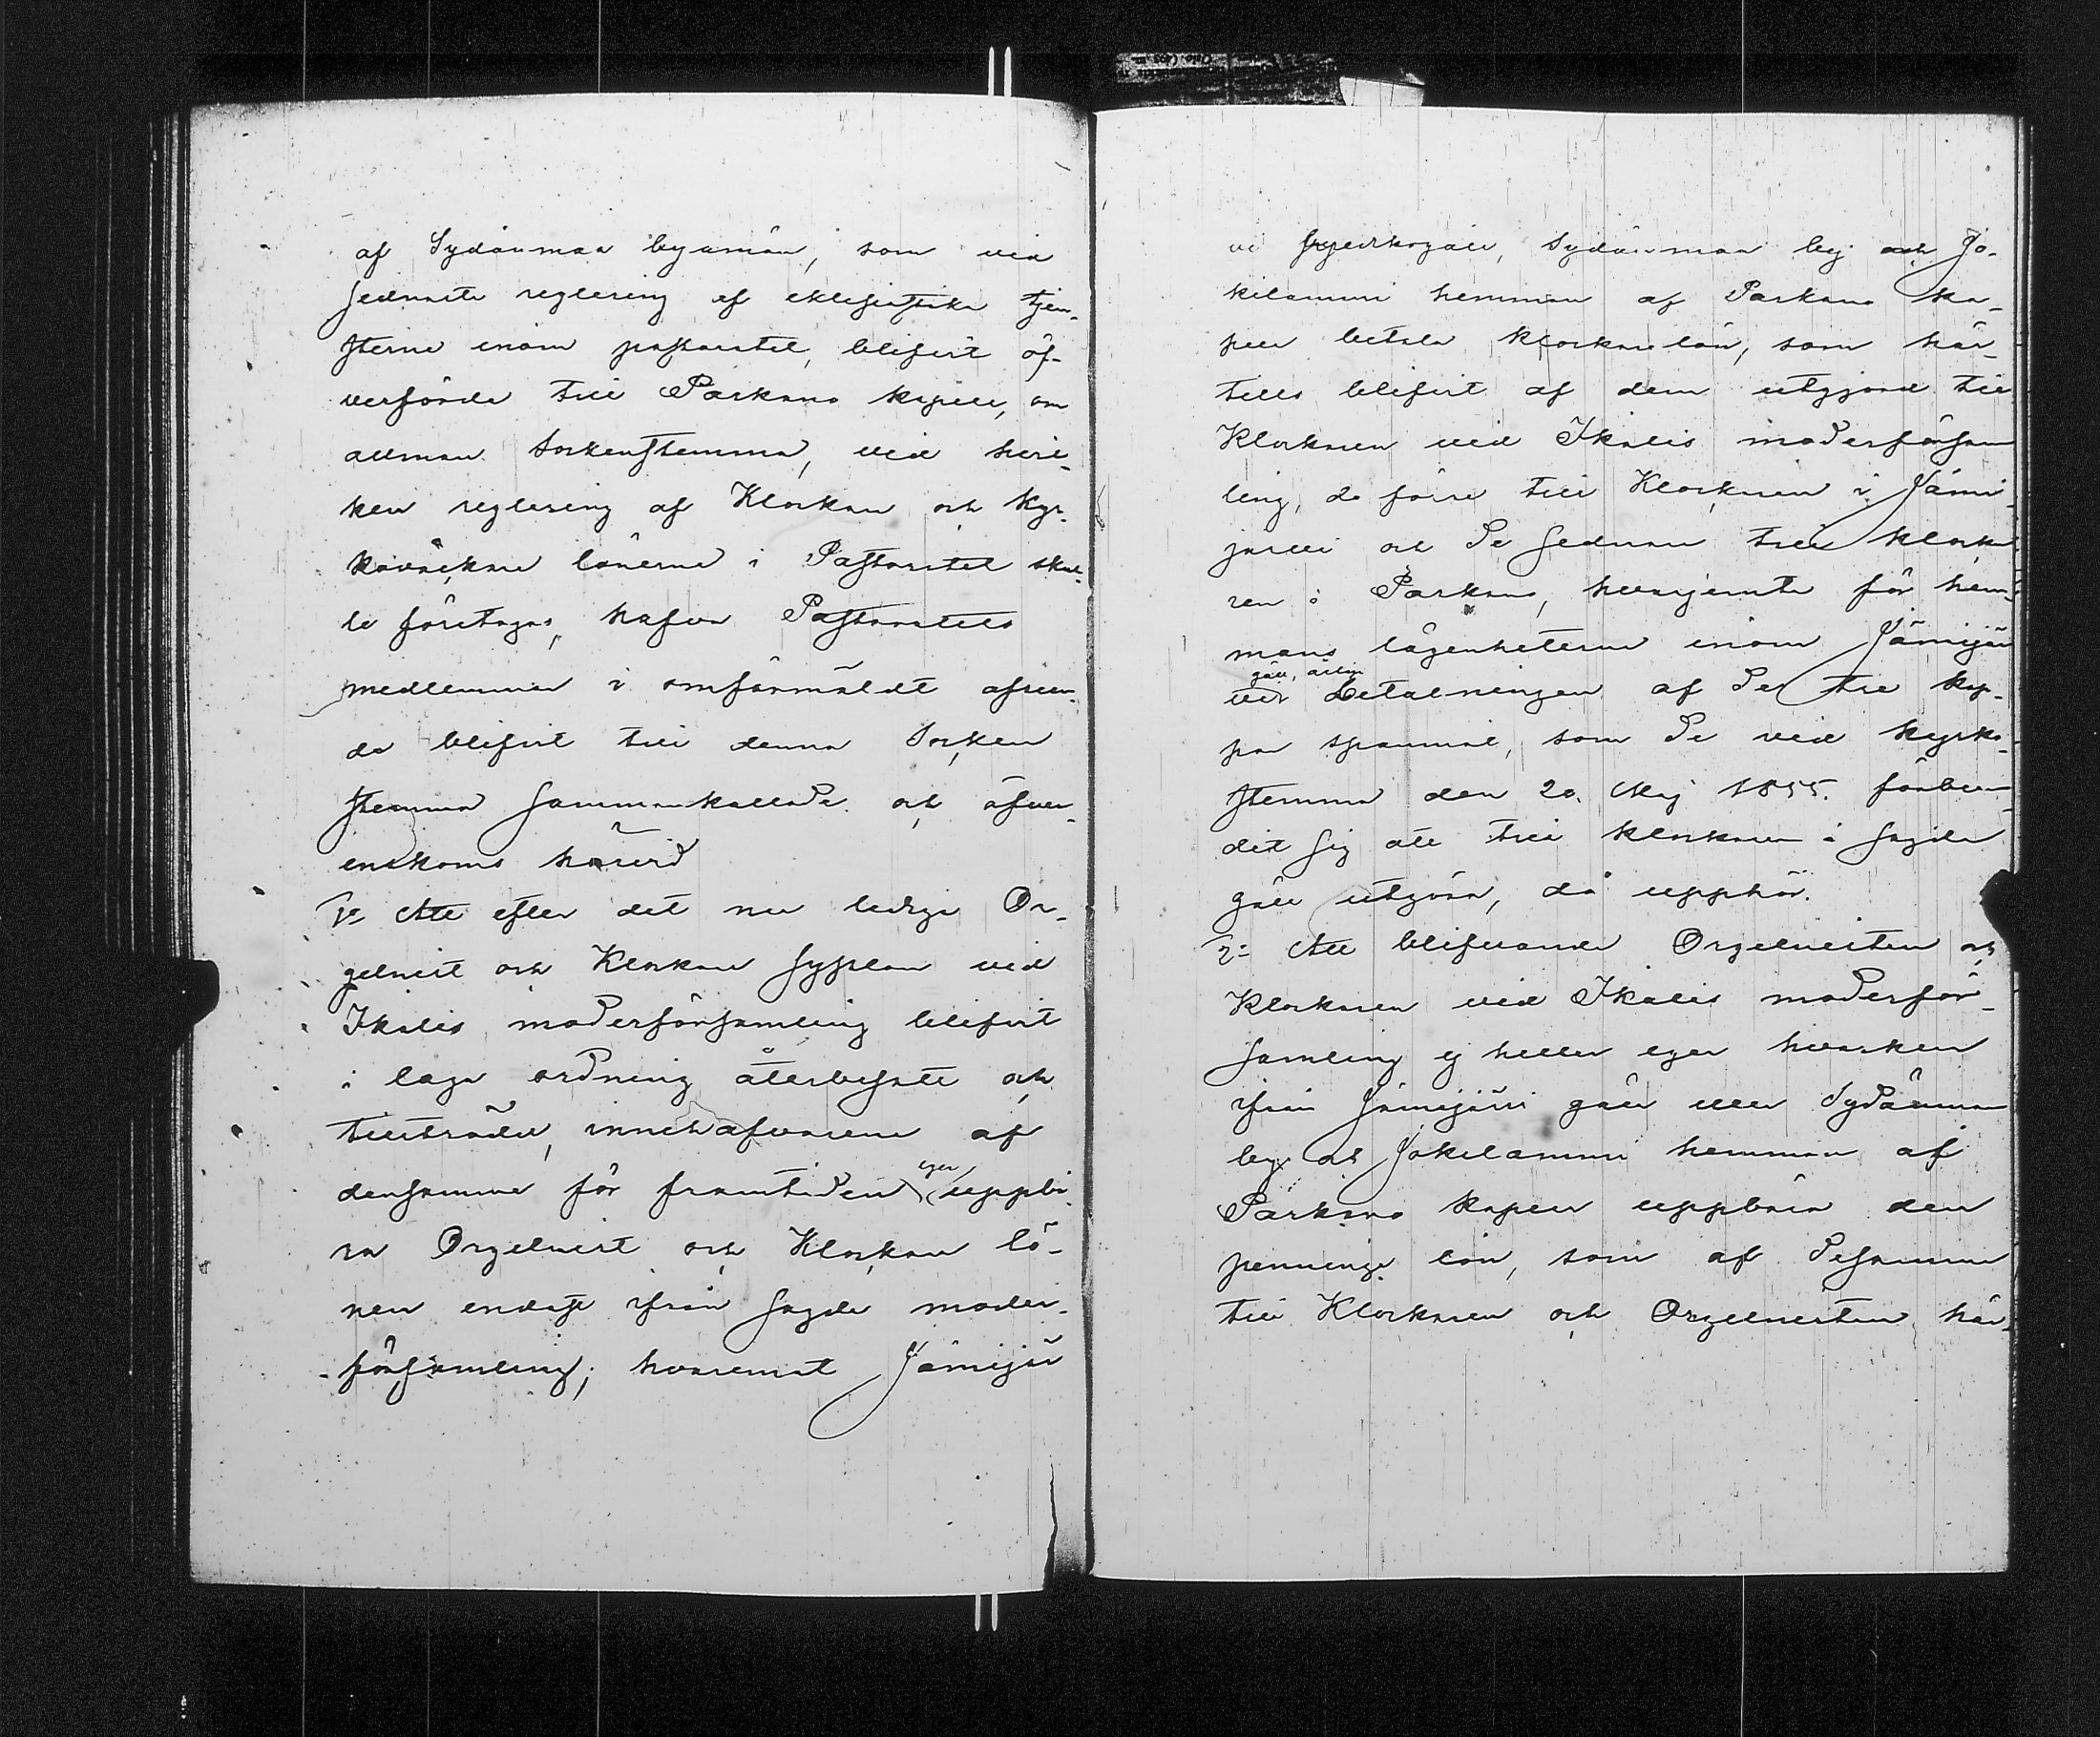 af Sydänmaa byamän, som vid
sednaste reglering af eklesiastika tjen-
sterne inom pastoratet, blifvit öf-
verförde till Parkano kapell, om
allmän Sockenstemma, vid hvil-
ken reglering af Klockare och kyr-
koväktare lönerne i Pastoratet skul-
le företagas, hafva Pastoratets
medlemmar i omförmäldt afseen-
de blifvit till denna Socken
stemma sammankallade och öfver-
enskoms härvid
1º Att efter det nu lediga Or-
gelnist och Klockare sysslan vid
Ikalis moderförsamling blifvit
i laga ordning återbesatt och
tillträdd, innehafvaren af
densamma för framtiden eger uppbä-
ra Orgelnist och Klockare lö-
nen endast ifrån sagde moder-
församling; hvaremot Jämijär
vi Sydänmaa by och Jo-
kilammi hemman af Parkano ka-
pell betala klockare lön, som här-
tills blifvit af dem utgjord till
Klockaren vid Ikalis moderförsam
ling, de förre till Klockaren i Jämi
järvi och de sednare till klocka
ren i Parkano, hvarjemte för hem-
mans lägenheterne inom Jämijär
vi gäll, årliga betalningen af de tre kap-
par spannmål, som de vid kyrko-
stemma den 20. Maj 1855. förbun-
dit sig att till klockaren i sagde
gäll utgöra, då upphör.
2º Att blifvande Orgelnisten och
Klockaren vid Ikalis moderför-
samling ej heller eger hvarken
ifrån Jämijärvi gäll eller Sydänmaa
by och Jokilammi hemman af
Parkano kapell uppbära den
penninge lön, som af desamma
till Klockaren och Orgelnisten här-